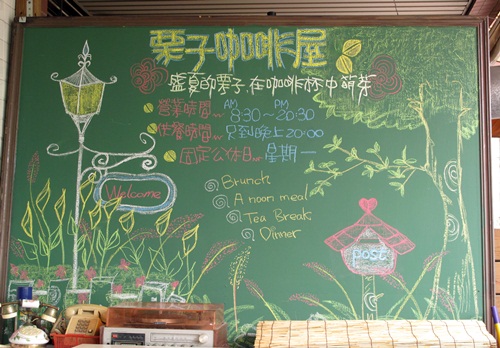 栗子咖啡屋
盛夏的栗子.在咖啡杯中萌芽
營業時間... AM 8:30~PM 20:30
供餐時間... 只到晚上20:00
固定公休日... 星期一
Brunch
A noon meal
Tea Break
Dinner
Welcome
post